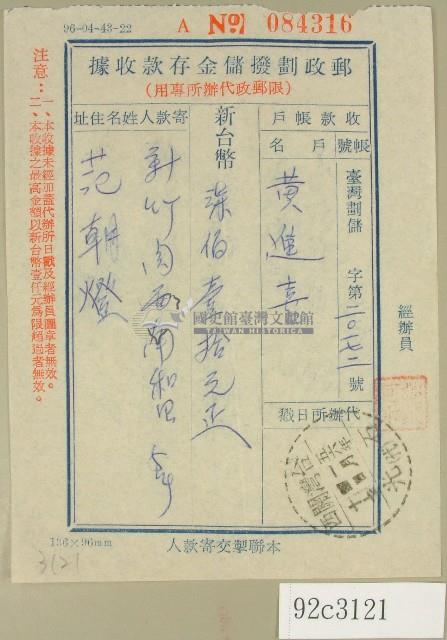 96-04-43-22
A No 084316
郵政劃撥儲金存款收據
(限郵政代辦所專用)
收款帳戶
帳號
戶名
臺灣劃儲 字第 二〇一七二 號
黃進
代辦所日戳
經辦員
新台幣
柒佰壹拾元正
寄款人姓名住址
新竹
范朝燈
注意:
一、本收據未經加蓋代辦所日戳及經辦員圖章者無效。
二、本收據之最高金額以新台幣壹仟元為限超過者無效。
國史館臺灣文獻館
TAIWAN HISTORICA
136×96mm
本聯掣交寄款人
3121
92c3121